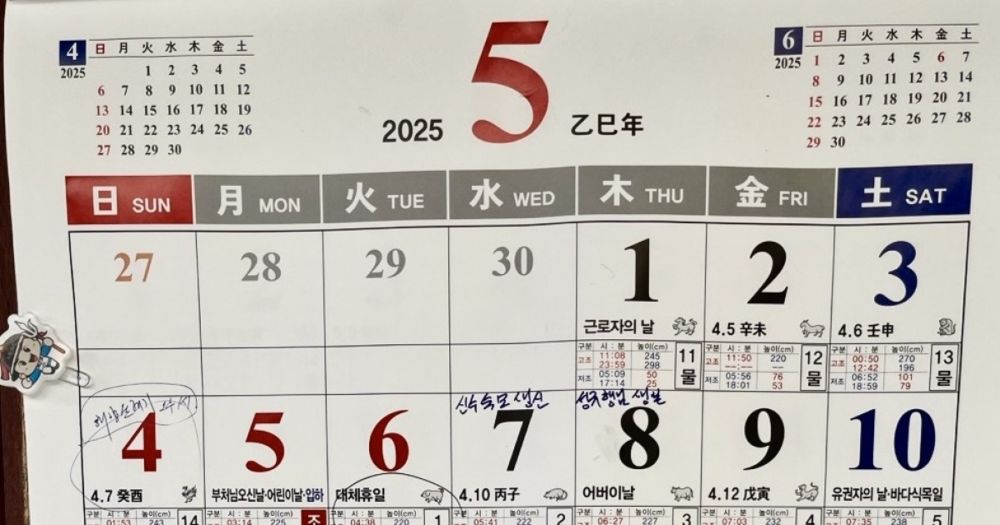 4
2025
日 月 火 水 木 金 土
1 2 3 4 5
6 7 8 9 10 11 12
13 14 15 16 17 18 19
20 21 22 23 24 25 26
27 28 29 30
2025 5 乙巳年
6
2025
日 月 火 水 木 金 土
1 2 3 4 5 6 7
8 9 10 11 12 13 14
15 16 17 18 19 20 21
22 23 24 25 26 27 28
29 30
日 SUN 月 MON 火 TUE 水 WED 木 THU 金 FRI 土 SAT
27 28 29 30 1 2 3
근로자의 날 4.5 辛未 4.6 壬申
구분 시 : 분 높이(cm) 구분 시 : 분 높이(cm) 구분 시 : 분 높이(cm)
고조 11:08 245 11물 고조 11:50 220 12물 고조 00:50 270 13물
23:59 298 --:-- --- 12:42 196
저조 05:09 50 저조 05:56 76 저조 06:52 101
17:14 25 18:01 53 18:59 79
숙모 생신 형님 생일
4 5 6 7 8 9 10
4.7 癸酉 부처님오신날·어린이날·입하 대체휴일 4.10 丙子 어버이날 4.12 戊寅 유권자의 날·바다식목일
구분 시 : 분 높이(cm) 구분 시 : 분 높이(cm) 구분 시 : 분 높이(cm) 구분 시 : 분 높이(cm) 구분 시 : 분 높이(cm) 구분 시 : 분 높이(cm) 구분 시 : 분 높이(cm)
01:53 243 14 03:14 225 조 04:38 220 1 05:41 222 2 06:27 227 3 07:03 232 4 07:35 238 5